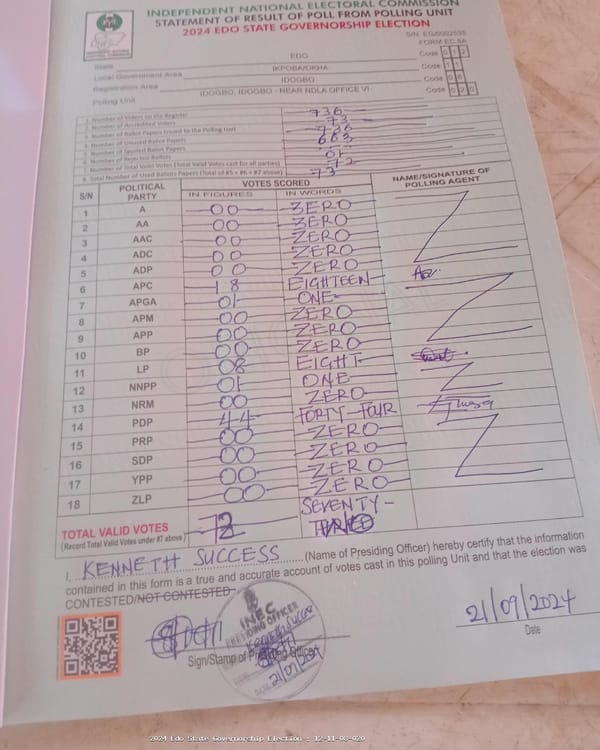 INDEPENDENT NATIONAL ELECTORAL COMMISSION
STATEMENT OF RESULT OF POLL FROM POLLING UNIT
2024 EDO STATE GOVERNORSHIP ELECTION
FORM EC 8A
State EDO Code 012
Local Government Area IKPOBA/OKHA Code 11
Registration Area IDOGBO Code 08
Polling Unit IDOGBO, IDOGBO - NEAR NDLA OFFICE VI Code 020
Number of Voters on the Register 736
Number of Accredited Voters 73
Number of Ballot Papers Issued to the Polling Unit 736
Number of Unused Ballot Papers 663
Number of Spoiled Ballot Papers
Number of Rejected Ballots 01
Number of Total Valid Votes (Total Valid Votes cast for all parties) 72
Total Number of Used Ballot Papers (Total of #5 + #6 + #7 above) 73
S/N POLITICAL PARTY VOTES SCORED NAME/SIGNATURE OF POLLING AGENT
IN FIGURES IN WORDS
1 A 00 ZERO
2 AA 00 ZERO
3 AAC 00 ZERO
4 ADC 00 ZERO
5 ADP 00 ZERO
6 APC 18 EIGHTEEN
7 APGA 01 ONE
8 APM 00 ZERO
9 APP 00 ZERO
10 BP 00 ZERO
11 LP 08 EIGHT
12 NNPP 01 ONE
13 NRM 00 ZERO
14 PDP 44 FORTY-FOUR
15 PRP 00 ZERO
16 SDP 00 ZERO
17 YPP 00 ZERO
18 ZLP 00 ZERO
TOTAL VALID VOTES SEVENTY-
(Record Total Valid Votes under #7 above)
I, KENNETH SUCCESS (Name of Presiding Officer) hereby certify that the information
contained in this form is a true and accurate account of votes cast in this polling Unit and that the election was
CONTESTED/NOT CONTESTED
21/09/2024
Date
Sign/Stamp of Presiding Officer
INEC
PRESIDING OFFICER
21/09/2024
2024 Edo State Governorship Election : 12-11-08-020